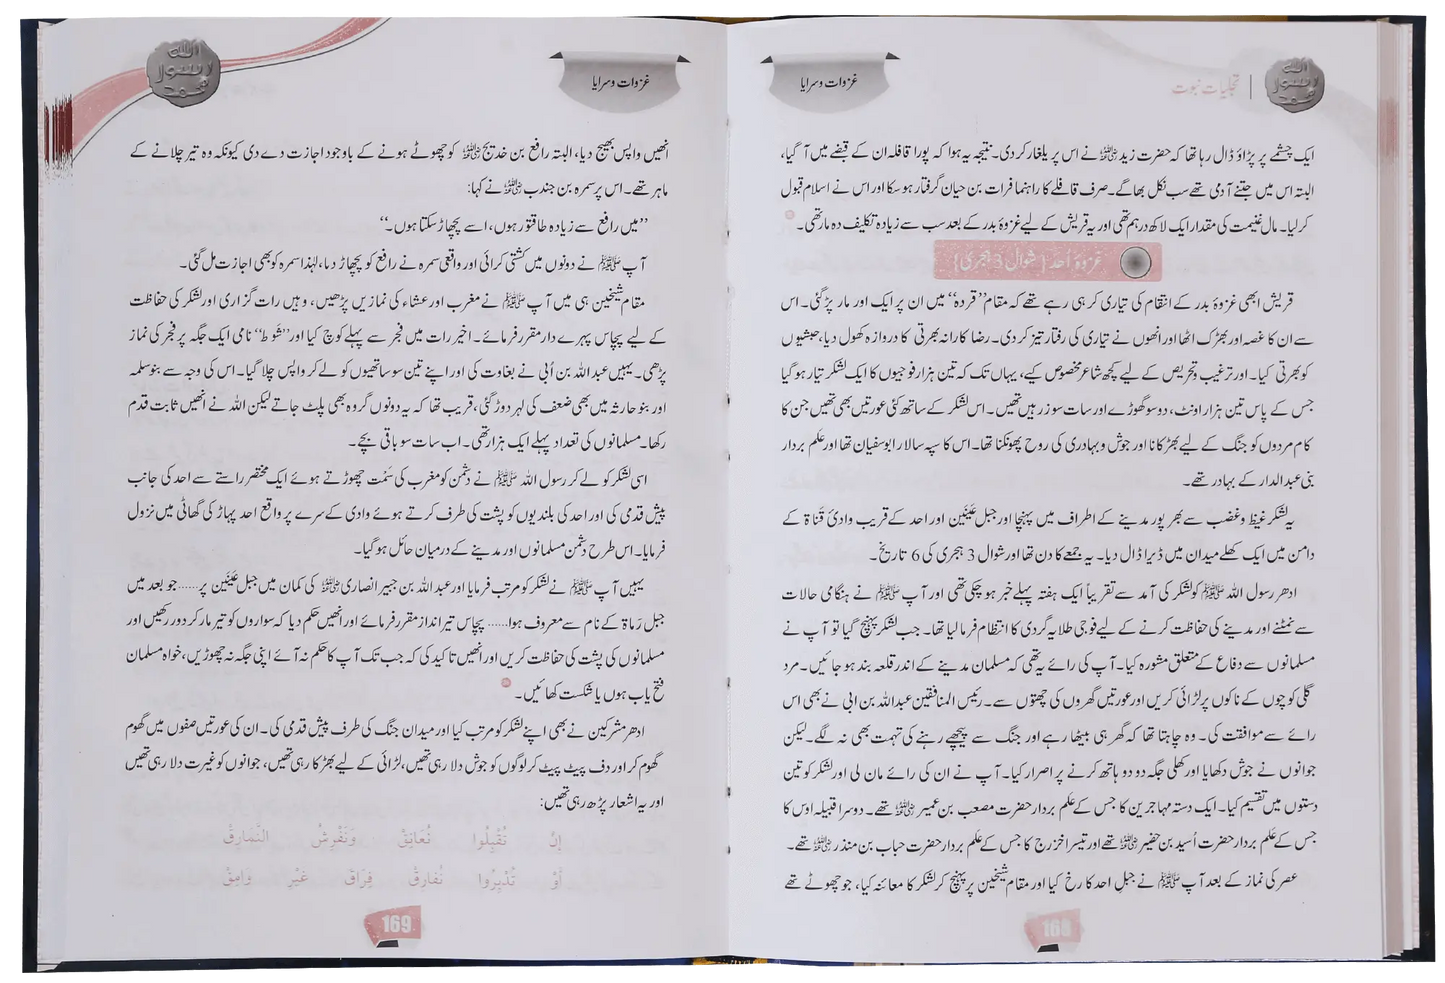 تجلیات نبوت
غزوات وسرایا
ایک چشمے پر پڑاؤ ڈال رہا تھا کہ حضرت زید رضی اللہ عنہ نے اس پر یلغار کر دی۔ نتیجہ یہ ہوا کہ پورا قافلہ ان کے قبضے میں آ گیا،
البتہ اس میں جتنے آدمی تھے سب نکل بھاگے۔ صرف قافلے کا راہنما فرات بن حیان گرفتار ہو سکا اور اس نے اسلام قبول
کر لیا۔ مال غنیمت کی مقدار ایک لاکھ درہم تھی اور یہ قریش کے لیے غزوۂ بدر کے بعد سب سے زیادہ تکلیف دہ مار تھی۔
غزوۂ اُحد [شوال 3 ہجری]
قریش ابھی غزوۂ بدر کے انتقام کی تیاری کر ہی رہے تھے کہ مقام ”قردہ“ میں ان پر ایک اور مار پڑ گئی۔ اس
سے ان کا غصہ اور بھڑک اٹھا اور انھوں نے تیاری کی رفتار تیز کر دی۔ رضا کارانہ بھرتی کا دروازہ کھول دیا، حبشیوں
کو بھرتی کیا۔ اور ترغیب و تحریص کے لیے کچھ شاعر مخصوص کیے، یہاں تک کہ تین ہزار فوجیوں کا ایک لشکر تیار ہو گیا
جس کے پاس تین ہزار اونٹ، دو سو گھوڑے اور سات سو زرہیں تھیں۔ اس لشکر کے ساتھ کئی عورتیں بھی تھیں جن کا
کام مردوں کو جنگ کے لیے بھڑکانا اور جوش و بہادری کی روح پھونکنا تھا۔ اس کا سپہ سالار ابوسفیان تھا اور علم بردار
بنی عبدالدار کے بہادر تھے۔
یہ لشکر غیظ و غضب سے بھر پور مدینے کے اطراف میں پہنچا اور جبل عَیْنَین اور احد کے قریب وادیٔ قَناۃ کے
دامن میں ایک کھلے میدان میں ڈیرا ڈال دیا۔ یہ جمعے کا دن تھا اور شوال 3 ہجری کی 6 تاریخ۔
ادھر رسول اللہ ﷺ کو لشکر کی آمد سے تقریباً ایک ہفتہ پہلے خبر ہو چکی تھی اور آپ ﷺ نے ہنگامی حالات
سے نمٹنے اور مدینے کی حفاظت کرنے کے لیے فوجی طلایہ گردی کا انتظام فرما لیا تھا۔ جب لشکر پہنچ گیا تو آپ نے
مسلمانوں سے دفاع کے متعلق مشورہ کیا۔ آپ کی رائے یہ تھی کہ مسلمان مدینے کے اندر قلعہ بند ہو جائیں۔ مرد
گلی کوچوں کے ناکوں پر لڑائی کریں اور عورتیں گھروں کی چھتوں سے۔ رئیس المنافقین عبداللہ بن ابی نے بھی اس
رائے سے موافقت کی۔ وہ چاہتا تھا کہ گھر ہی بیٹھا رہے اور جنگ سے پیچھے رہنے کی تہمت بھی نہ لگے۔ لیکن
جوانوں نے جوش دکھایا اور کھلی جگہ دو دو ہاتھ کرنے پر اصرار کیا۔ آپ نے ان کی رائے مان لی اور لشکر کو تین
دستوں میں تقسیم کیا۔ ایک دستہ مہاجرین کا جس کے علم بردار حضرت مصعب بن عمیر رضی اللہ عنہ تھے۔ دوسرا قبیلہ اوس کا
جس کے علم بردار حضرت اُسید بن حضیر رضی اللہ عنہ تھے اور تیسرا خزرج کا جس کے علم بردار حضرت حباب بن منذر رضی اللہ عنہ تھے۔
عصر کی نماز کے بعد آپ ﷺ نے جبل احد کا رخ کیا اور مقام شیخین پر پہنچ کر لشکر کا معائنہ کیا، جو چھوٹے تھے
168
غزوات وسرایا
انھیں واپس بھیج دیا، البتہ رافع بن خدیج رضی اللہ عنہ کو چھوٹے ہونے کے باوجود اجازت دے دی کیونکہ وہ تیر چلانے کے
ماہر تھے۔ اس پر سمرہ بن جندب رضی اللہ عنہ نے کہا:
”میں رافع سے زیادہ طاقتور ہوں، اسے پچھاڑ سکتا ہوں۔“
آپ ﷺ نے دونوں میں کشتی کرائی اور واقعی سمرہ نے رافع کو پچھاڑ دیا، لہٰذا سمرہ کو بھی اجازت مل گئی۔
مقام شیخین ہی میں آپ ﷺ نے مغرب اور عشاء کی نمازیں پڑھیں، وہیں رات گزاری اور لشکر کی حفاظت
کے لیے پچاس پہرے دار مقرر فرمائے۔ اخیر رات میں فجر سے پہلے کوچ کیا اور ”شَوط“ نامی ایک جگہ پر فجر کی نماز
پڑھی۔ یہیں عبداللہ بن اُبی نے بغاوت کی اور اپنے تین سو ساتھیوں کو لے کر واپس چلا گیا۔ اس کی وجہ سے بنو سلمہ
اور بنو حارثہ میں بھی ضعف کی لہر دوڑ گئی، قریب تھا کہ یہ دونوں گروہ بھی پلٹ جاتے لیکن اللہ نے انھیں ثابت قدم
رکھا۔ مسلمانوں کی تعداد پہلے ایک ہزار تھی۔ اب سات سو باقی بچے۔
اسی لشکر کو لے کر رسول اللہ ﷺ نے دشمن کو مغرب کی سَمْت چھوڑتے ہوئے ایک مختصر راستے سے احد کی جانب
پیش قدمی کی اور احد کی بلندیوں کو پشت کی طرف کرتے ہوئے وادی کے سرے پر واقع احد پہاڑ کی گھاٹی میں نزول
فرمایا۔ اس طرح دشمن مسلمانوں اور مدینے کے درمیان حائل ہو گیا۔
یہیں آپ ﷺ نے لشکر کو مرتب فرمایا اور عبداللہ بن جبیر انصاری رضی اللہ عنہ کی کمان میں جبل عَیْنَین پر...... جو بعد میں
جبل رُماۃ کے نام سے معروف ہوا...... پچاس تیر انداز مقرر فرمائے اور انھیں حکم دیا کہ سواروں کو تیر مار کر دور رکھیں اور
مسلمانوں کی پشت کی حفاظت کریں اور انھیں تاکید کی کہ جب تک آپ کا حکم نہ آئے اپنی جگہ نہ چھوڑیں، خواہ مسلمان
فتح یاب ہوں یا شکست کھائیں۔
ادھر مشرکین نے بھی اپنے لشکر کو مرتب کیا اور میدان جنگ کی طرف پیش قدمی کی۔ ان کی عورتیں صفوں میں گھوم
گھوم کر اور دف پیٹ پیٹ کر لوگوں کو جوش دلا رہی تھیں، لڑائی کے لیے بھڑکا رہی تھیں، جوانوں کو غیرت دلا رہی تھیں
اور یہ اشعار پڑھ رہی تھیں:
إِنْ تُقْبِلُوا نُعَانِقْ وَنَفْرِشُ النَّمَارِقْ
أَوْ تُدْبِرُوا نُفَارِقْ فِرَاقَ غَيْرِ وَامِقْ
169